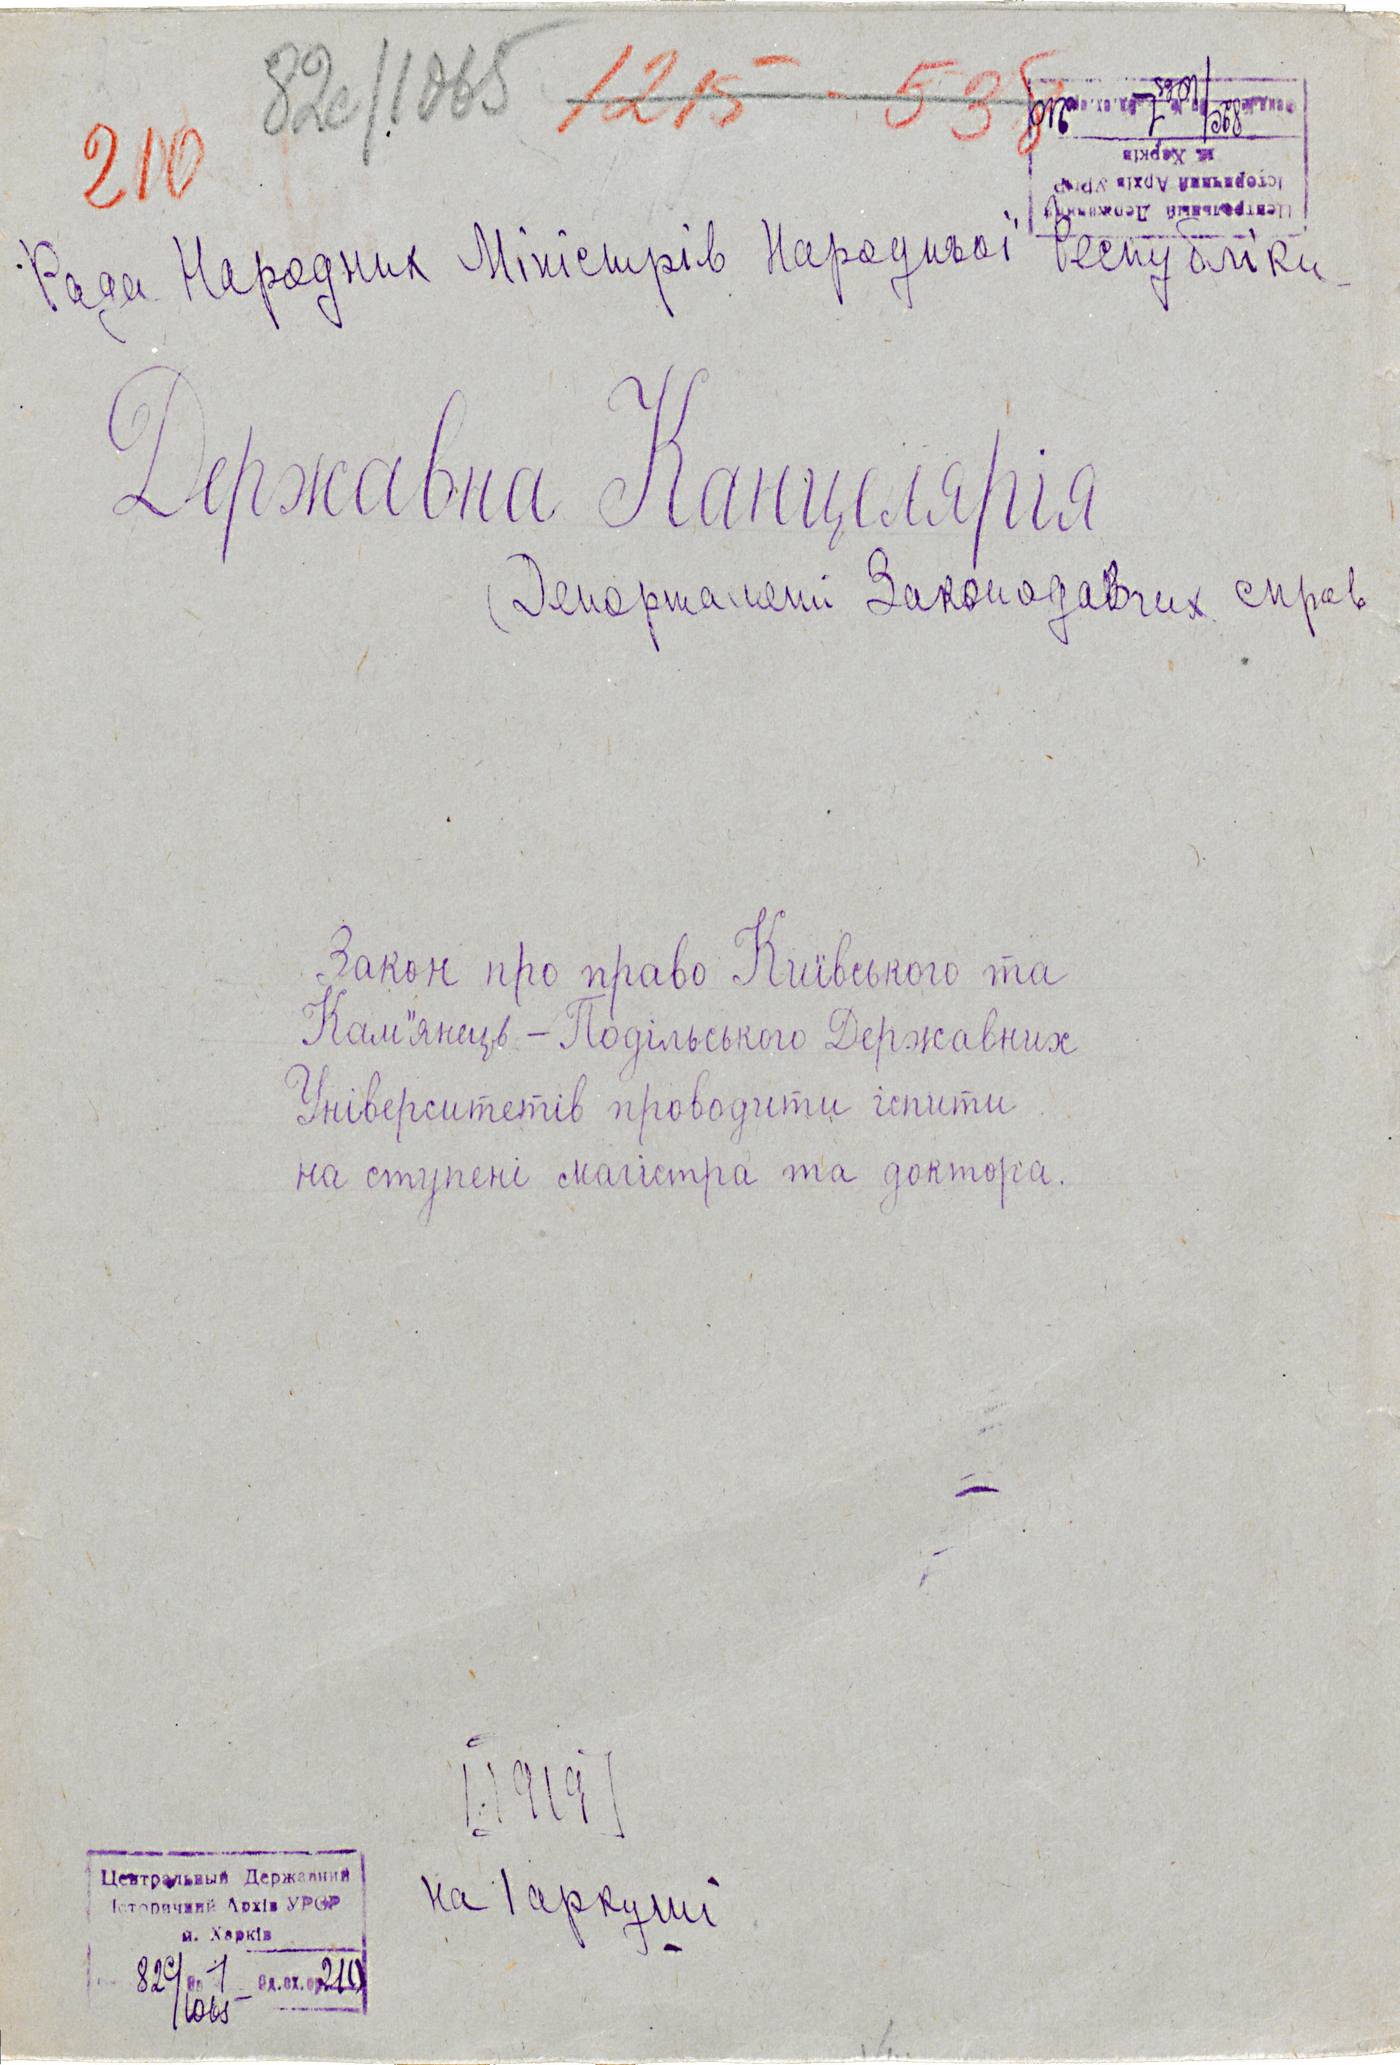 82с/1065 1215 - 535
210
Центральный Державний
Історичний Архів УРСР
м. Харків
82с/1065 1 210
Рада Народних Міністрів Народньої Республіки
Державна Канцелярія
(Департамент Законодавчих справ
Закон про право Київського та
Кам"янець-Подільського Державних
Університетів проводити іспити
на ступені магістра та доктора.
[1919]
на 1 аркуші
Центральный Державний
Історичний Архів УРСР
м. Харків
82с/1065 № 1 Од.сх.ор. 210